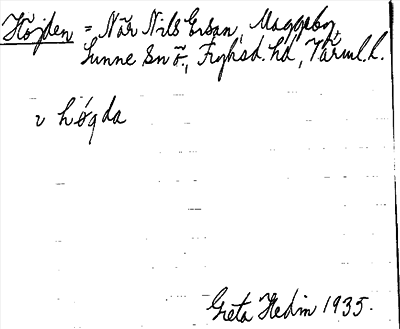 Höjden = När Nils Ersan, Maggeby,
Sunne Sn ö., Fryksd. hd, Värml. l.
v högda
Greta Hedin 1935.